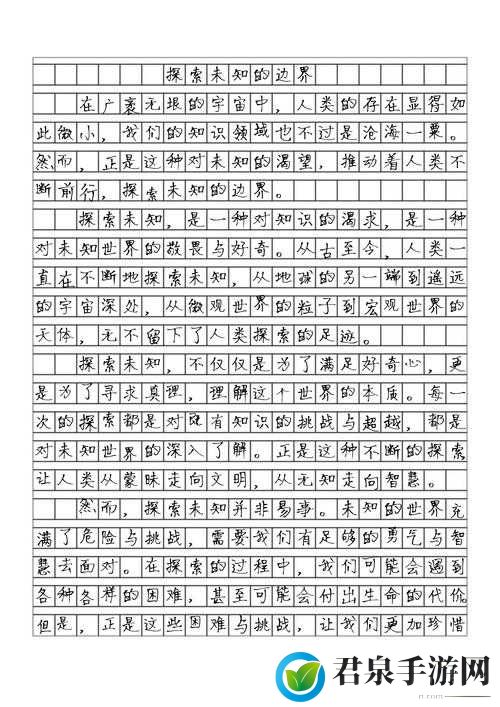 探索未知的边界
在广袤无垠的宇宙中，人类的存在显得如
此微小，我们的知识领域也不过是沧海一粟。
然而，正是这种对未知的渴望，推动着人类不
断前行，探索未知的边界。
探索未知，是一种对知识的渴求，是一种
对未知世界的敬畏与好奇。从古至今，人类一
直在不断地探索未知，从地球的另一端到遥远
的宇宙深处，从微观世界的粒子到宏观世界的
天体，无不留下了人类探索的足迹。
探索未知，不仅仅是为了满足好奇心，更
是为了寻求真理，理解这个世界的本质。每一
次的探索都是对既有知识的挑战与超越，都是
对未知世界的深入了解。正是这种不断的探索
让人类从蒙昧走向文明，从无知走向智慧。
然而，探索未知并非易事。未知的世界充
满了危险与挑战，需要我们有足够的勇气与智
慧去面对。在探索的过程中，我们可能会遇到
各种各样的困难，甚至可能会付出生命的代价。
但是，正是这些困难与挑战，让我们更加珍惜
君泉手游网